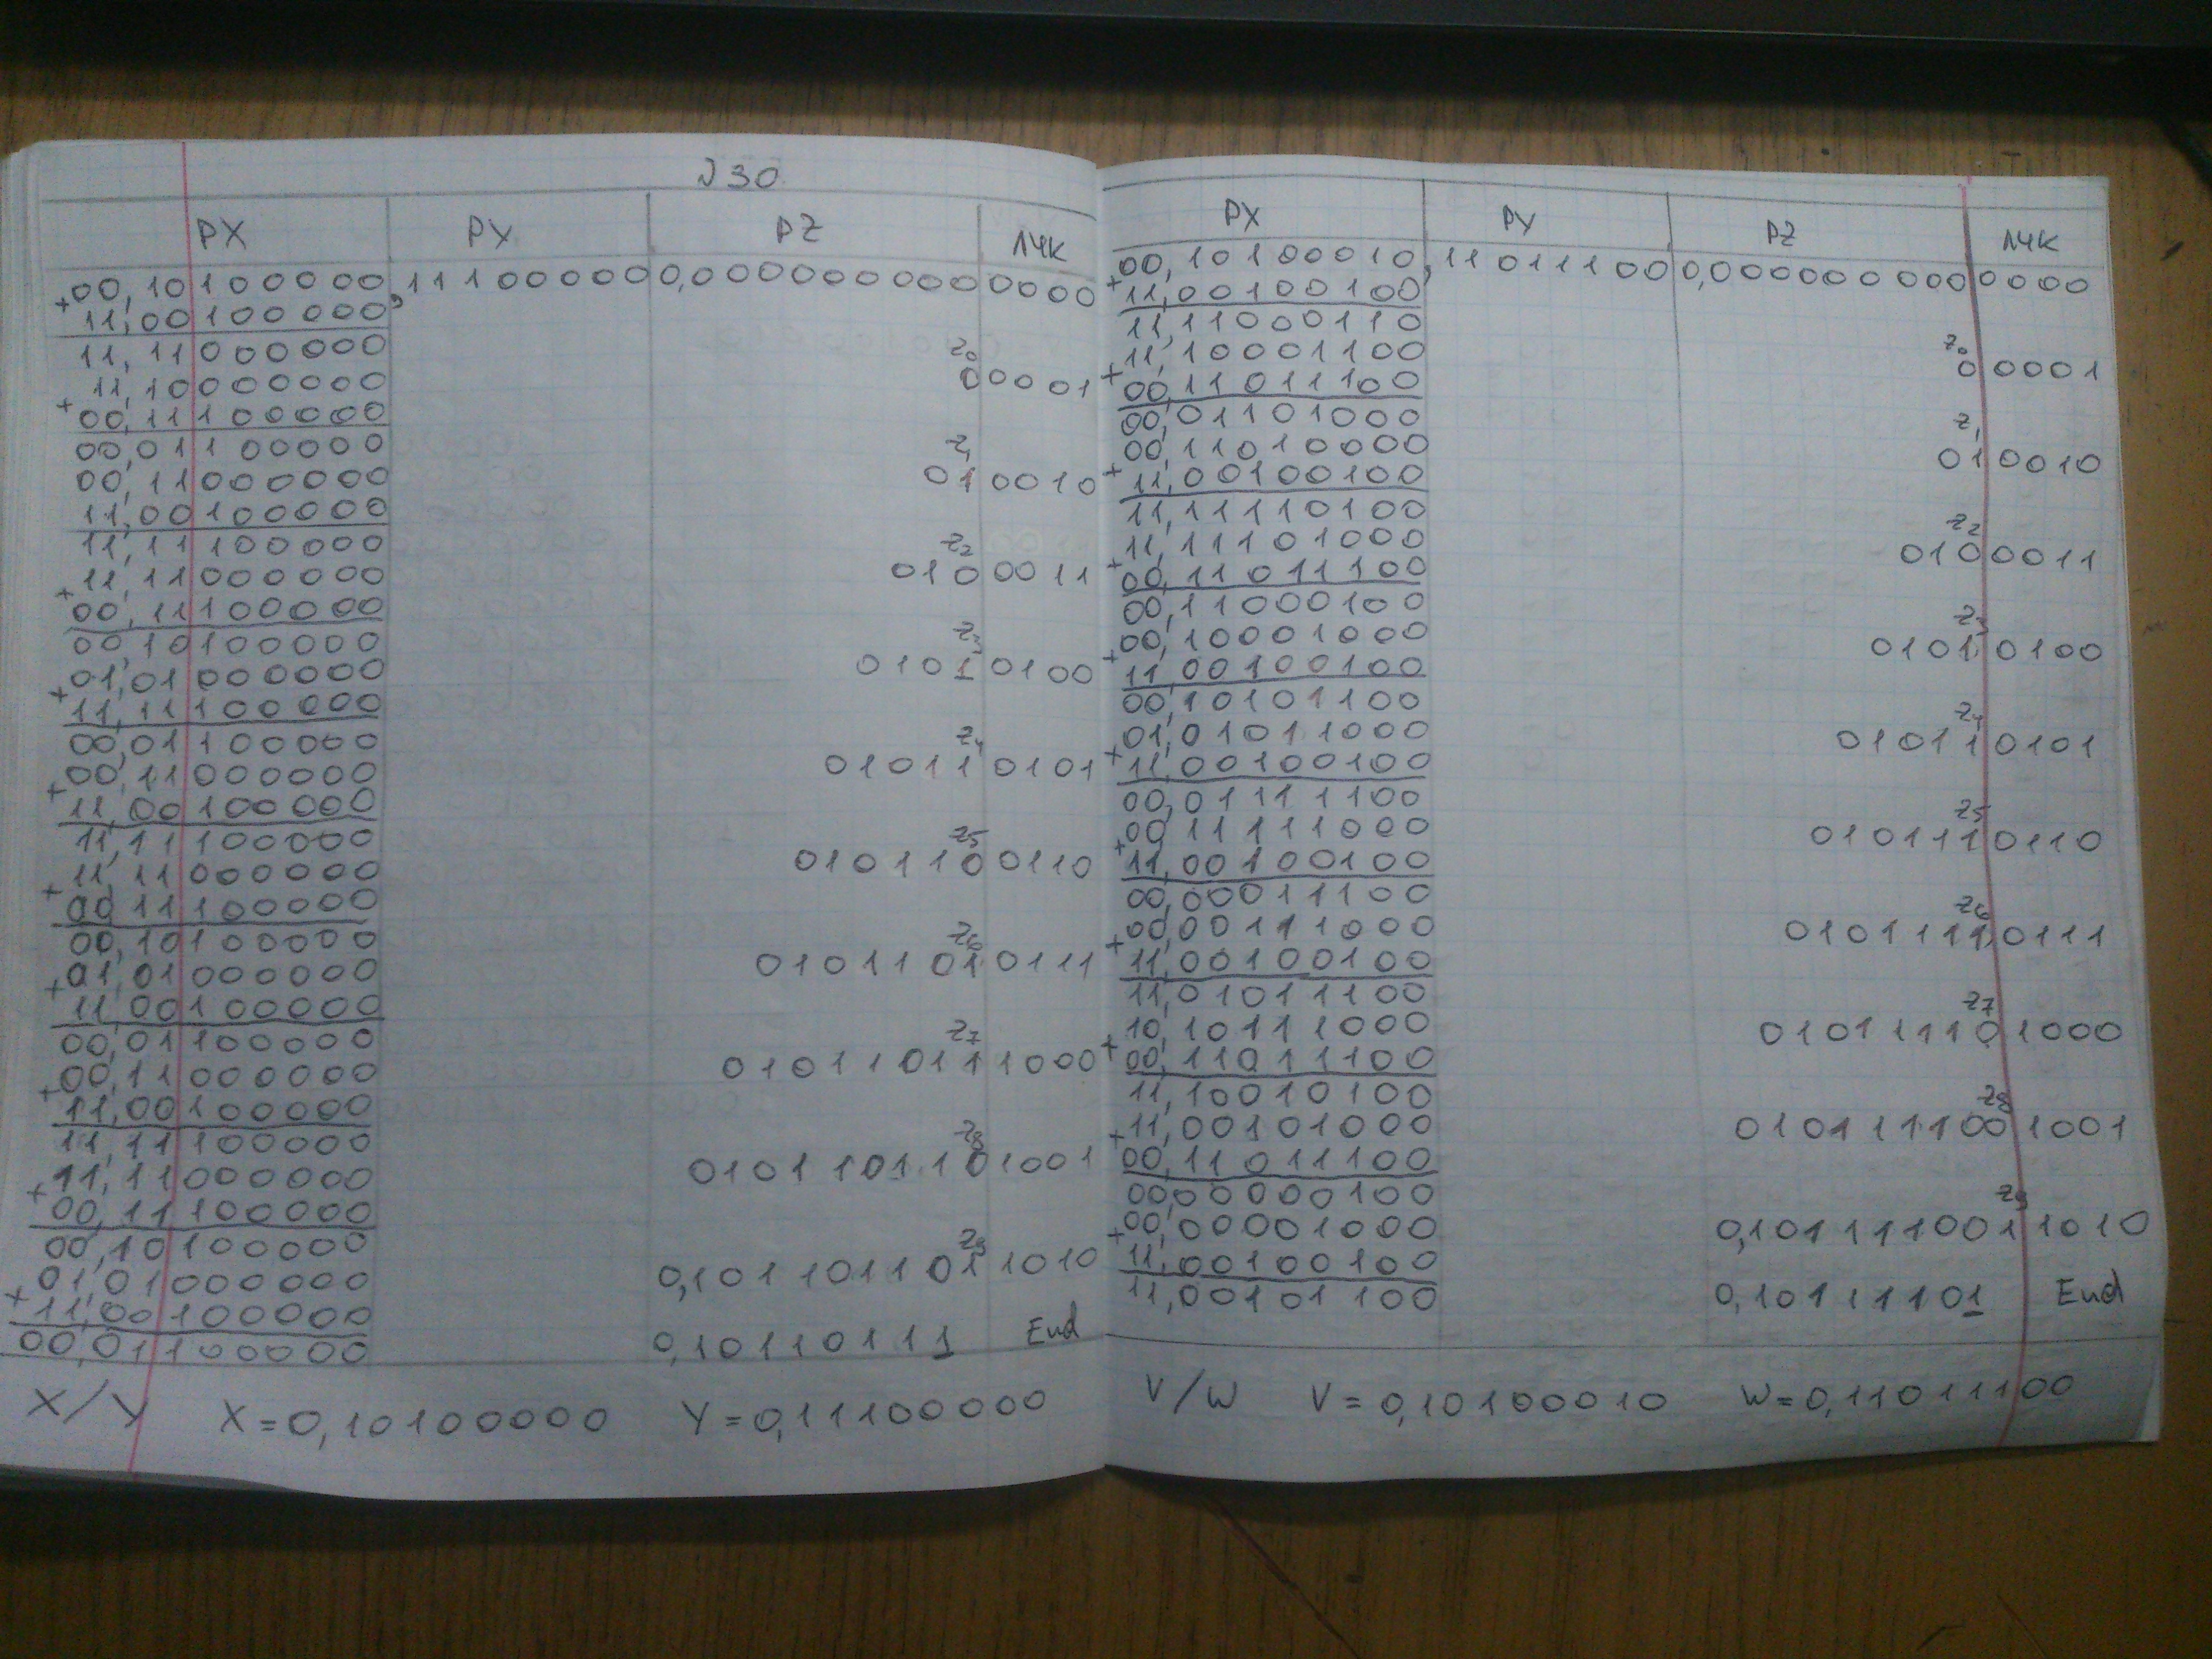 №30
РХ РУ PZ ЛЧК
00,10100000,111000000,0000000000000
+11,00100000
11,11000000
11,10000000 z0 0 0001
+00,11100000
00,01100000
00,11000000 z1 01 0010
11,00100000
11,11100000
11,11000000 z2 010 0011
+00,11100000
00,10100000
01,01000000 z3 0101 0100
+11,11100000
00,01100000
00,11000000 z4 01011 0101
+11,00100000
11,11100000
11,11000000 z5 010110 0110
+00,11100000
00,10100000
01,01000000 z6 0101101 0111
+11,00100000
00,01100000
00,11000000 z7 01011011 1000
+11,00100000
11,11100000
11,11000000 z8 010110110 1001
+00,11100000
00,10100000
01,01000000 z9 0,101101101 1010
+11,00100000
00,01100000 0,10110111 End
X/Y X=0,10100000 Y=0,11100000
РХ РУ PZ ЛЧК
00,10100010,110111000,0000000000000
+11,00100100
11,11000110
11,10001100 z0 0 0001
+00,11011100
00,01101000
00,11010000 z1 01 0010
+11,00100100
11,11110100
11,11101000 z2 010 0011
+00,11011100
00,11000100
00,10001000 z3 0101 0100
+11,00100100
00,10101100
01,01011000 z4 01011 0101
+11,00100100
00,01111100
00,11111000 z5 010111 0110
+11,00100100
00,00011100
00,00111000 z6 0101111 0111
+11,00100100
11,01011100
10,10111000 z7 01011110 1000
+00,11011100
11,10010100
11,00101000 z8 010111100 1001
+00,11011100
00,00000100
00,00001000 z9 0,101111001 1010
+11,00100100
11,00101100 0,10111101 End
V/W V=0,10100010 W=0,11011100